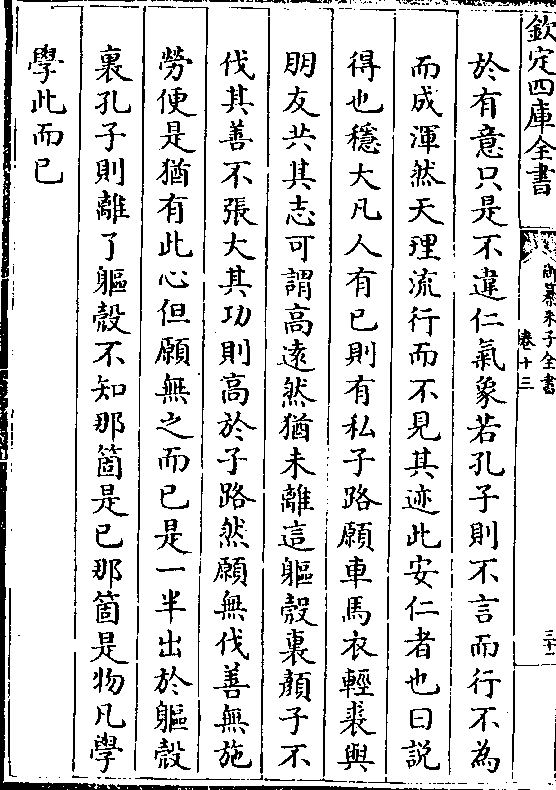 欽定四庫全書
御纂朱子全書
卷十三
於有意只是不違仁氣象若孔子則不言而行不為
而成渾然天理流行而不見其迹此安仁者也曰説
得也穩大凡人有已則有私子路願車馬衣輕裘與
朋友共其志可謂高遠然猶未離這軀殼裏顔子不
伐其善不張大其功則高於子路然願無伐善無施
勞便是猶有此心但願無之而已是一半出於軀殼
裏孔子則離了軀殼不知那箇是已那箇是物凡學
學此而已